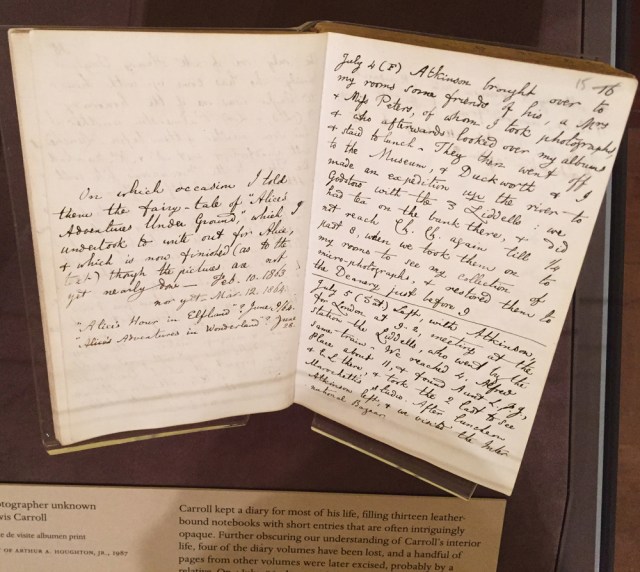 On which occasion I told
them the fairy-tale of "Alice's
Adventures Under Ground," which I
undertook to write out for Alice,
& which is now finished (as to the
text) though the pictures are not
yet nearly done — Feb. 10. 1863
nor yet — Mar. 12. 1864.
"Alice's Hour in Elfland"? June 9/64.
"Alice's Adventures in Wonderland"? June 28.
15 16
July 4 (F) Atkinson brought over to
my rooms some friends of his, a Mrs
& Miss Peters, of whom I took photographs,
& who afterwards looked over my albums
& staid to lunch. They then went off
to the Museum, & Duckworth & I
made an expedition up the river to
Godstow with the 3 Liddells: we
had tea on the bank there, & did
not reach Ch. Ch. again till 1/4
past 8, when we took them on to
my rooms to see my collection of
micro-photographs, & restored them to
the Deanery just before 9
July 5 (Sat) Left, with Atkinson,
for London at 9.2, meeting at the
station the Liddells, who went by the
same train. We reached 4, Alfred
Place about 11, & found Aunt L, P.J,
& L there, & took the 2 last to see
Marochetti's studio. After luncheon
Atkinson left, & we visited the Inter
national Bazaar
otographer unknown
wis Carroll
e de visite albumen print
OF ARTHUR A. HOUGHTON, JR., 1987
Carroll kept a diary for most of his life, filling thirteen leather-
bound notebooks with short entries that are often intriguingly
opaque. Further obscuring our understanding of Carroll's interior
life, four of the diary volumes have been lost, and a handful of
pages from other volumes were later excised, probably by a